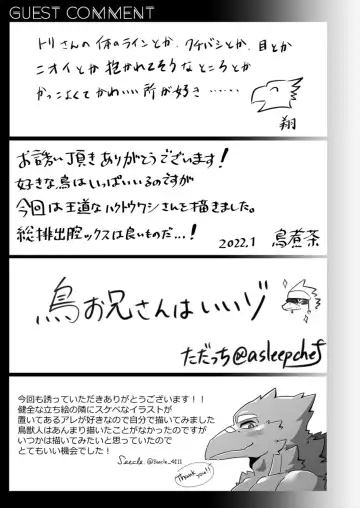 GUEST COMMENT
トリさんの体のラインとか、クチバシとか、目とか
ニオイとか抱かれてそうなところとか
かっこよくてかわいい所が好き……
翔
お誘い頂きありがとうございます!
好きな鳥はいっぱいいるのですが
今回は王道なハクトウワシさんを描きました。
総排出腔ックスは良いものだ…!
2022.1 鳥煮茶
鳥お兄さんはいいゾ
ただっち@asleepchef
今回も誘っていただきありがとうございます!!
健全な立ち絵の隣にスケベなイラストが
置いてあるアレが好きなので自分で描いてみました
鳥獣人はあんまり描いたことがなかったのですが
いつかは描いてみたいと思っていたので
とてもいい機会でした!
Seecle @Seecle_4211
Thank you!!